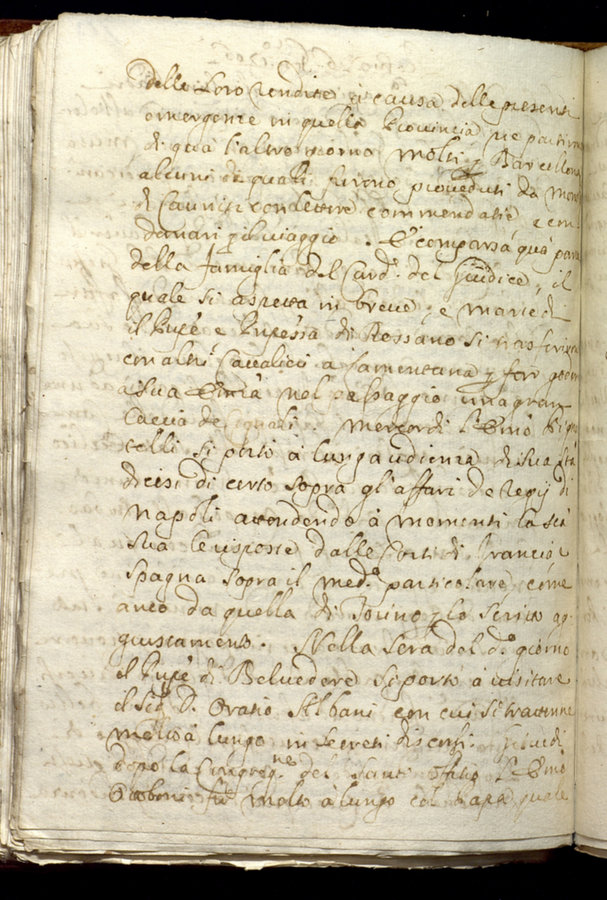 delle Loro rendite a causa delle presenti
emergenze in quella Provincia ne partirno
di qua l'altro giorno molti p Barcellona
alcuni de quali furono proveduti da Mons
di con lettere commendatie e con
danari p il viaggio. E' comparsa qua parte
della famiglia del Card. del Giudice, il
quale si aspetta in breve, e martedi
il Pnpe e Pnpessa di Rossano si trasferirno
con altri Cavalieri a Lamentana p far godere
a sua Emza nel passaggio una gran
Caccia de Cignali. Mercordi l'Emo Pigna
telli si portò à lunga udienza di sua Stà
dicesi di certo sopra gl'affari de Regij di
Napoli attendendo à momenti la Stà
sua le risposte dalle Corti di Francia e
Spagna sopra il med.o particolare come
anco da quella di Torino p lo scritto ag=
giustamento. Nella sera del d.o giorno
il Pnpe di Belvedere si portò à visitare
il Sig. D. Oratio Albani con cui si trattenne
molto à lungo in secreti discorsi. Giovedi
dopo la Congreg.ne del Santo Offitio l'Emo
Ottoboni fù molto à lungo col Papa quale